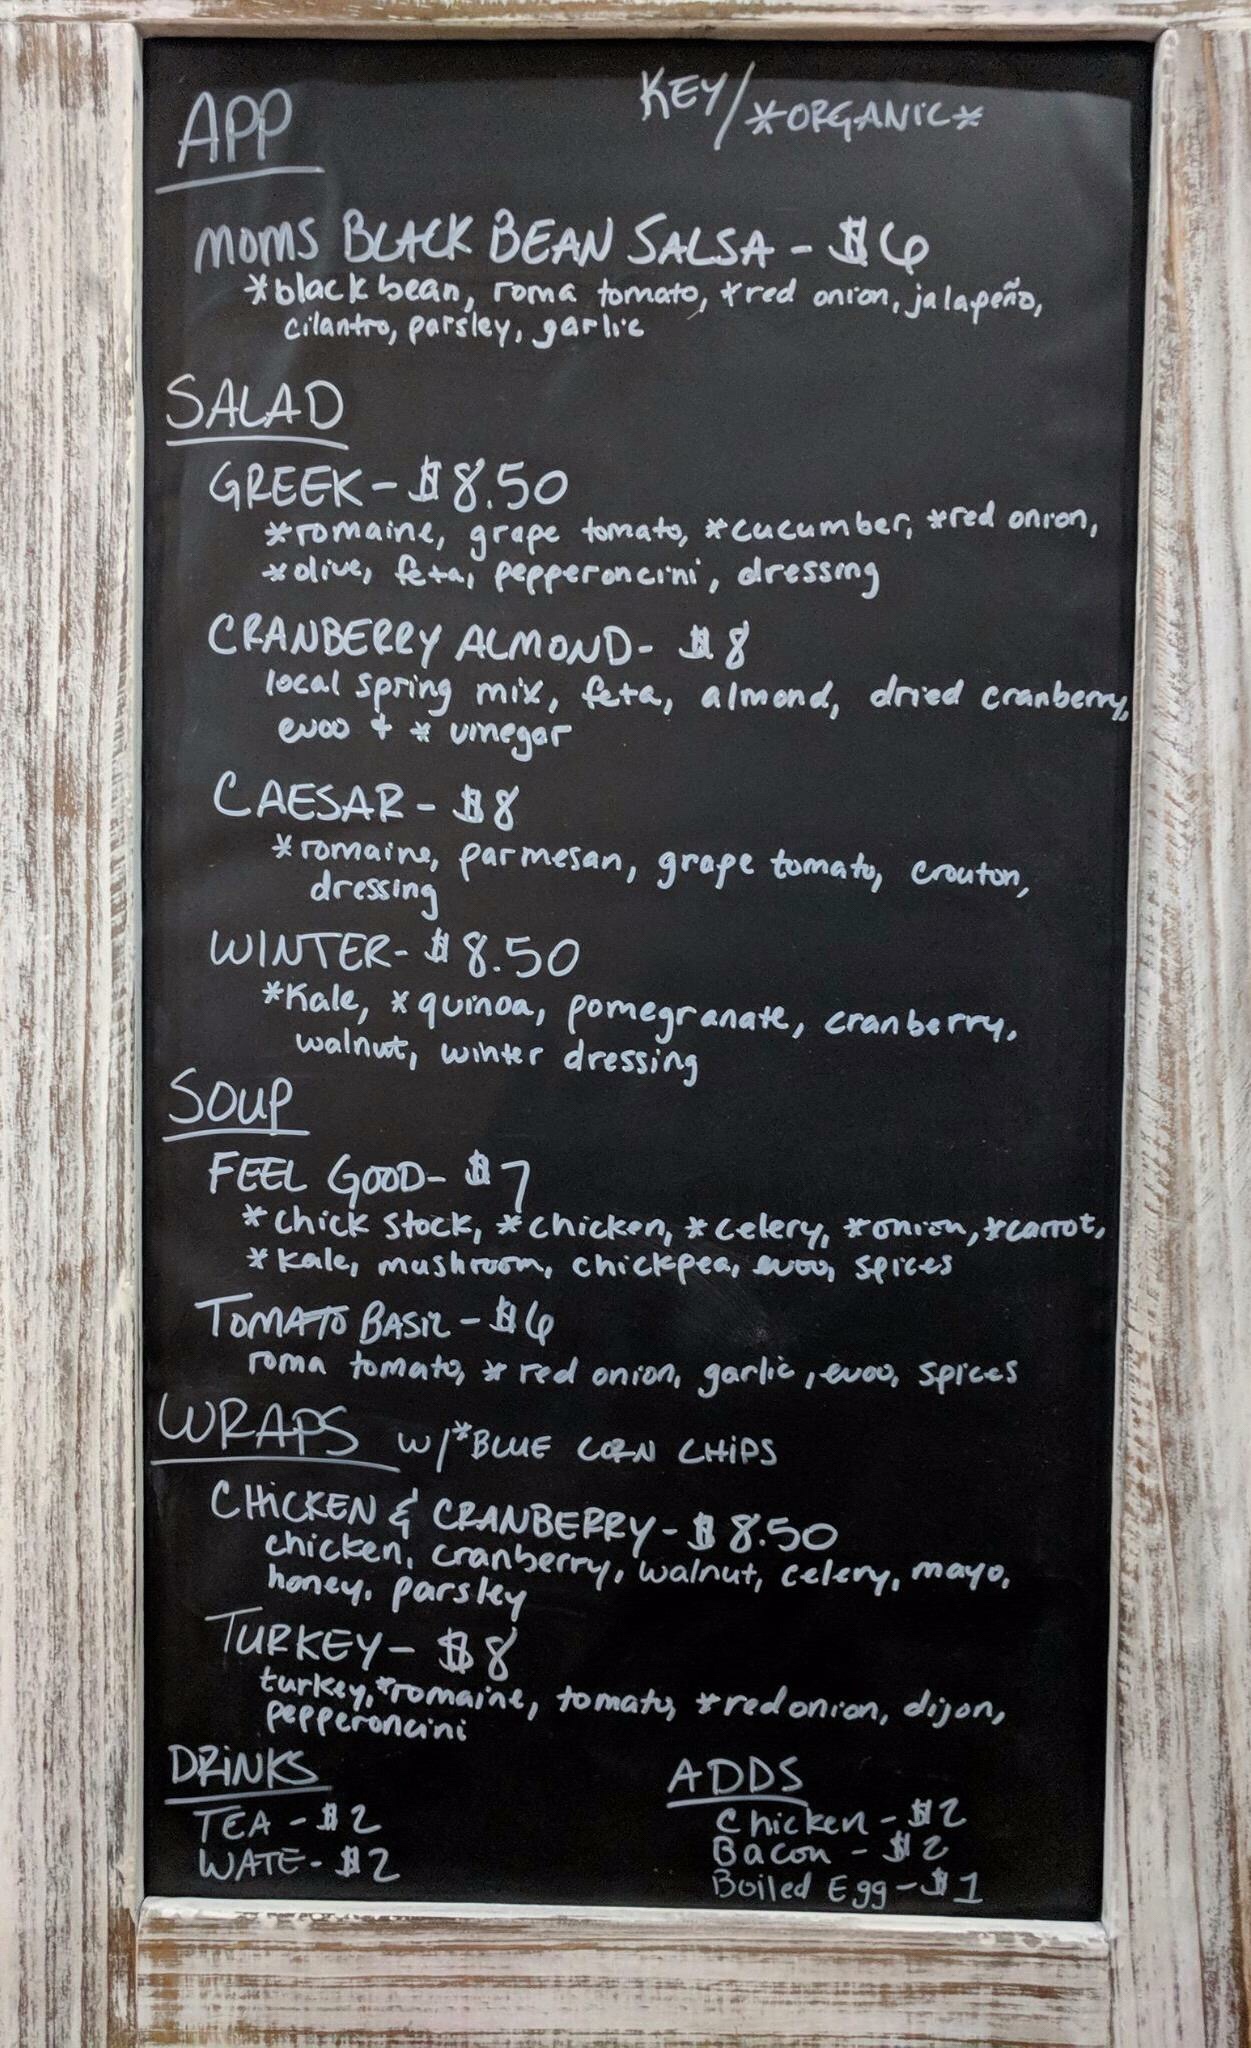 APP
KEY/*ORGANIC*
MOMS BLACK BEAN SALSA - $6
*black bean, roma tomato, *red onion, jalapeño,
cilantro, parsley, garlic
SALAD
GREEK - $8.50
*romaine, grape tomato, *cucumber, *red onion,
*olive, feta, pepperoncini, dressing
CRANBERRY ALMOND - $8
local spring mix, feta, almond, dried cranberry,
evoo + * vinegar
CAESAR - $8
*romaine, parmesan, grape tomato, crouton,
dressing
WINTER - $8.50
*Kale, *quinoa, pomegranate, cranberry,
walnut, winter dressing
SOUP
FEEL GOOD - $7
*chick stock, *chicken, *celery, *onion, *carrot,
*kale, mushroom, chickpea, evoo, spices
TOMATO BASIL - $6
roma tomato, *red onion, garlic, evoo, spices
WRAPS W/*BLUE CORN CHIPS
CHICKEN & CRANBERRY - $8.50
chicken, cranberry, walnut, celery, mayo,
honey, parsley
TURKEY - $8
turkey, *romaine, tomato, *red onion, dijon,
pepperoncini
DRINKS
TEA - $2
WATE - $2
ADDS
Chicken - $2
Bacon - $2
Boiled Egg - $1